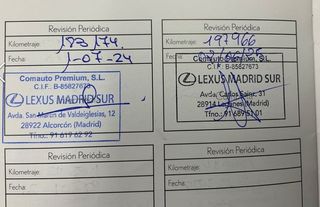 Revisión Periódica
Kilometraje: 183.174.
Fecha: 1-07-24
Comauto Premium, S.L.
C.I.F. B-85827673
LEXUS MADRID SUR
Avda. San Martín de Valdeiglesias, 12
28922 Alcorcón (Madrid)
Tfno.: 91 619 62 92
Revisión Periódica
Kilometraje: 197966
Fecha:
Comauto Premium, S.L.
C.I.F. B-85827673
LEXUS MADRID SUR
Avda. Carlos Sainz, 31
28914 Leganés (Madrid)
Tfno.: 91 689
Revisión Periódica
Kilometraje:
Fecha:
Revisión Periódica
Kilometraje:
Fecha: